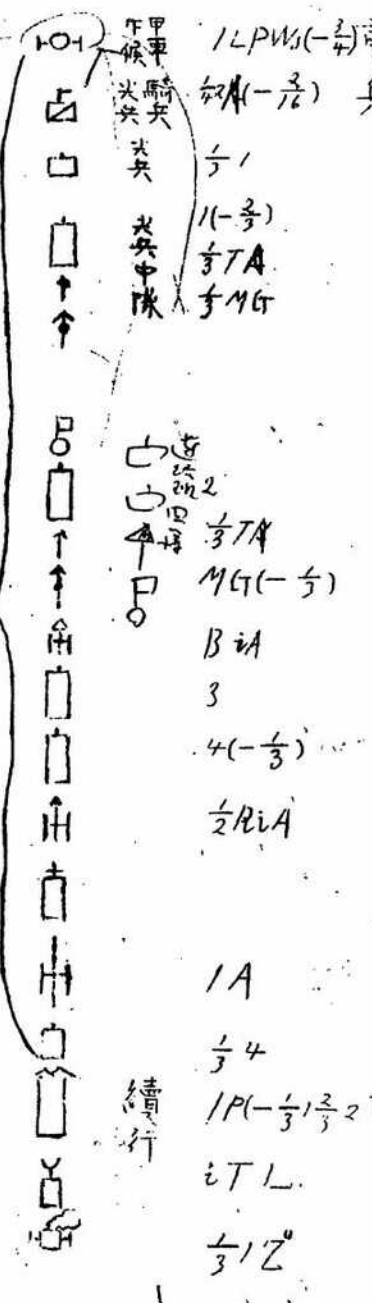 甲車
斥候
1LPWs(-3/4)
騎兵
尖兵
(-3/16)
尖兵
1/3 1
尖兵中隊
1(-2/3)
1/3 TA
1/3 MG
道路
2
1/3 TA
MG(-1/3)
BiA
3
4(-1/3)
1/2 RiA
1A
1/3 4
續行
1P(-1/3 1 2/3 2
iTL
1/3 1Z"